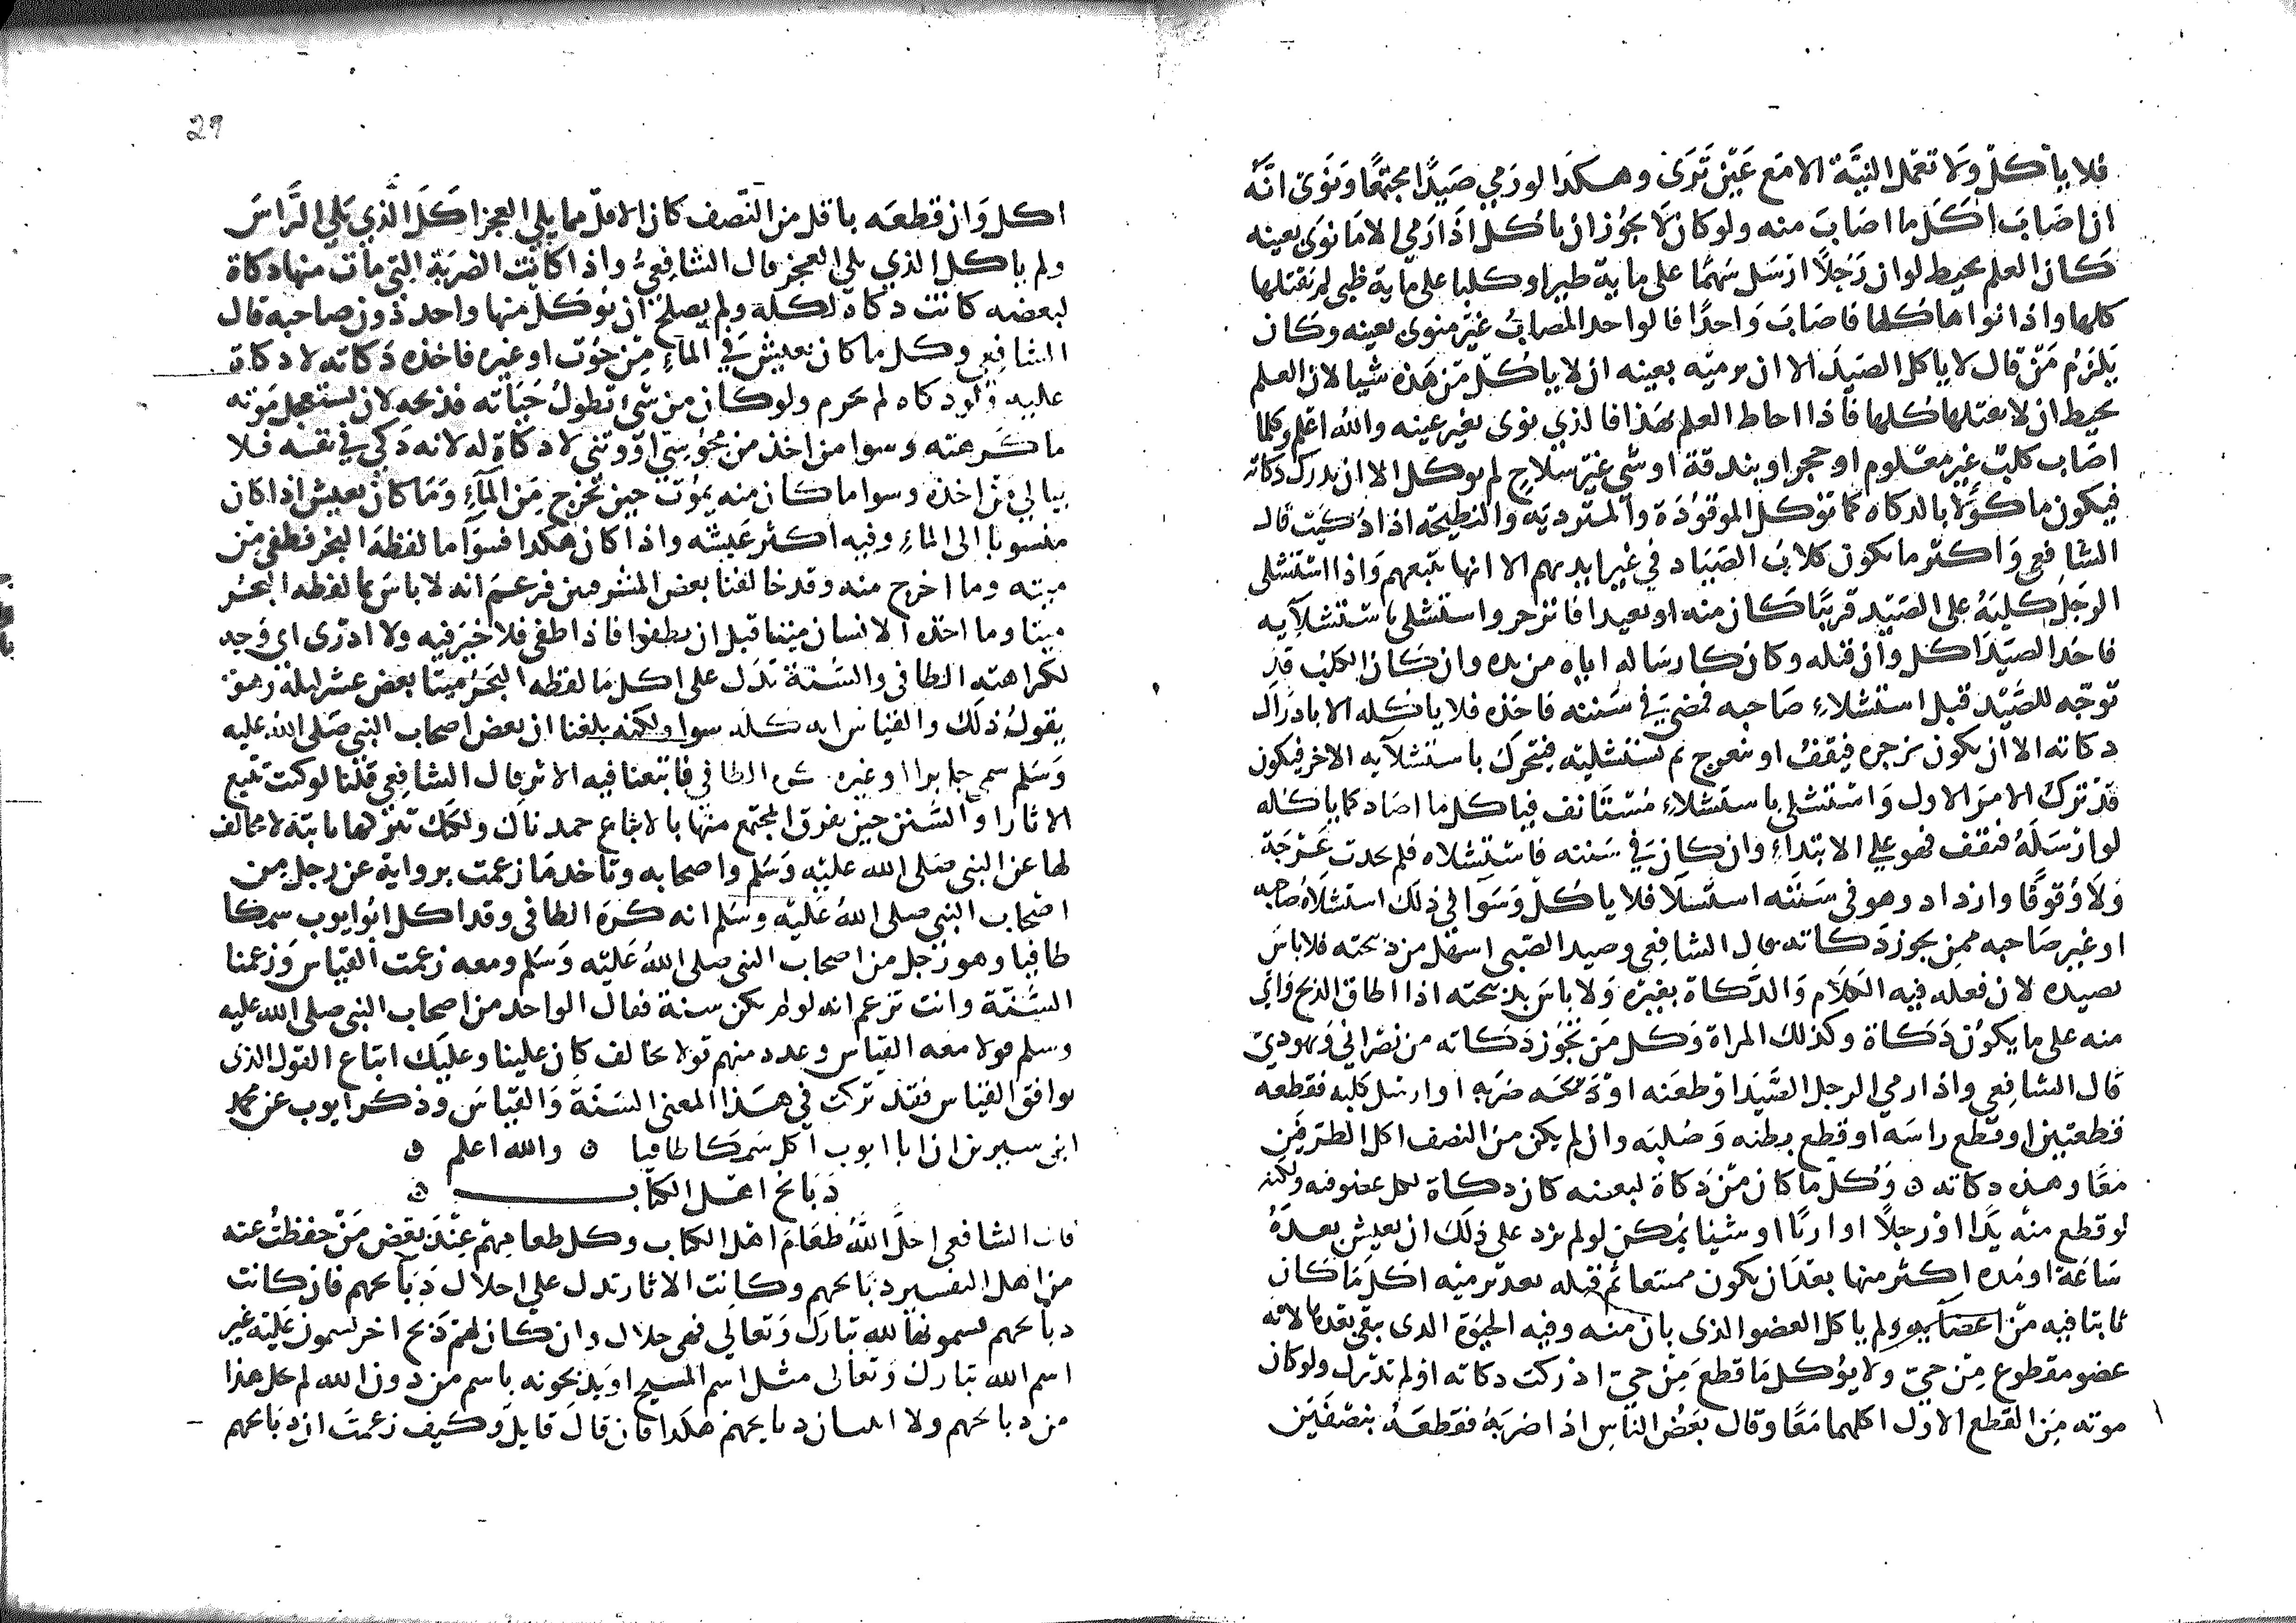 فلا يأكل ولا تعمل النية الا مع عين ترى وهكذا لو رمى صيدا مجتمعا ونوى انه
ان اصاب اكل ما اصاب منه ولو كان لا يجوز ان ياكل اذا رمى الا ما نوى بعينه
كان العلم يحيط لو ان رجلا ارسل سهما على ماية طير او كلبا على ماية ظبى لم يقتلها
كلها واذا نواها كلها فاصاب واحدا فالواحد المصاب غير منوى بعينه وكان
يلزم من قال لا ياكل الصيد الا ان يرميه بعينه ان لا ياكل من هذه شيا لان العلم
يحيط ان لا يقتلها كلها فاذا احاط العلم بهذا فالذي نوى بغير عينه والله اعلم وكلما
اصاب كلب غير معلوم او حجر او بندقة او شى غير سلاح لم يوكل الا ان يدرك ذكاته
فيكون ماكولا بالذكاه كما توكل الموقوذة والمتردية والنطيحة اذا ذكيت قال
الشافعى واكثر ما يكون كلاب الصياد في غير ايديهم الا انها تتبعهم واذا استشلى
الرجل كلبه على الصيد قريبا كان منه او بعيدا فانزجر واستشلى باستشلآيه
فاخذ الصيد اكل وان قتله وكان كارساله اياه من يده وان كان الكلب قد
توجه للصيد قبل استشلاء صاحبه فمضى في سننه فاخذه فلا ياكله الا بادراك
ذكاته الا ان يكون يزجره فيقف او ينعرج ثم يستشليه فيتحرك باستشلآيه الاخر فيكون
قد ترك الامر الاول واستشلى باستشلاء مستانف فياكل ما اصاد كما ياكله
لو ارسله فيقف فهو على الابتداء وان كان في سننه فاستشلاه فلم يحدث عرجة
ولا وقوفا وازداد وهو فى سننه استشلا فلا ياكل وسوا في ذلك استشلاه صاحبه
او غير صاحبه ممن يجوز ذكاته قال الشافعى وصيد الصبى اسهل من ذبيحته فلا باس
بصيده لان فعله فيه الكلام والذكاة بغيره ولا باس بذبيحته اذا اطاق الذبح واتى
منه على ما يكون ذكاة وكذلك المراة وكل من تجوز ذكاته من نصراني ويهودي
قال الشافعى واذا رمى الرجل الصيد او طعنه او ضربه او ارسل كلبه فقطعه
قطعتين او قطع راسه او قطع بطنه وصلبه وان لم يكن من النصف اكل الطرفين
معا وهذه ذكاته وكل ما كان من ذكاة لبعضه كان ذكاة لكل عضو فيه ولكنه
لو قطع منه يدا او رجلا او اربا او شيا يمكن لو لم يزد على ذلك ان يعيش بعده
ساعة او مده اكثر منها بعد ان يكون ممتنعا ثم قتله بعد برميه اكل ما كان
ثابتا فيه من اعضايه ولم ياكل العضو الذى بان منه وفيه الحيوة الذى يبقى بعدها لانه
عضو مقطوع من حي ولا يؤكل ما قطع من حي ادركت ذكاته او لم تدرك ولو كان
موته من القطع الاول اكلهما معا وقال بعض الناس اذا ضربه فقطعه بنصفين
29
اكل وان قطعه باقل من النصف كان الاقل مما يلى العجز اكل الذي يلي الراس
ولم ياكل الذي يلى العجز قال الشافعى واذا كانت الضربة التي مات منها ذكاة
لبعضه كانت ذكاة لكله ولم يصلح ان يوكل منها واحد دون صاحبه قال
الشافعى وكل ما كان يعيش في الماء من حوت او غيره فاخذه ذكاته لا ذكاة
عليه ولو ذكاه لم يحرم ولو كان من شى تطول حياته فذبحه لان يستعجل موته
ما كرهته وسوا من اخذ من مجوسي او وثني لا ذكاة له لانه ذكي في نفسه فلا
يبالي من اخذه وسوا ما كان منه يموت حين تخرج من الماء وما كان يعيش اذا كان
منسوبا الى الماء وفيه اكثر عيشه واذا كان هكذا فسوآ ما لفظه البحر فطفى من
ميته وما اخرج منه وقد خالفنا بعض المشرقيين فزعم انه لا باس بما لفظه البحر
ميتا وما اخذه الانسان ميتا قبل ان يطفوا فاذا طفى فلا خير فيه ولا ادرى اى وجه
لكراهته الطافى والسنة تدل على اكل ما لفظه البحر ميتا بعض عشر ليلة وهو
يقول ذلك والقياس انه كله سوا ولكنه بلغنا ان بعض اصحاب النبى صلى الله عليه
وسلم سمى جابرا او غيره كره الطافي فاتبعنا فيه الاثر قال الشافعى قلنا لو كنت تتبع
الاثار او السنن حين نفرق المجتمع منها بالاتباع حمدناك ولكنك تتركها ثابتة لا مخالف
لها عن النبى صلى الله عليه وسلم واصحابه وتاخذ ما زعمت برواية عن رجل من
اصحاب النبى صلى الله عليه وسلم انه كره الطافى وقد اكل ابو ايوب سمكا
طافيا وهو رجل من اصحاب النبى صلى الله عليه وسلم ومعه زعمت القياس وزعمنا
السنة وانت تزعم انه لو لم يكن سنة فقال الواحد من اصحاب النبى صلى الله عليه
وسلم قولا معه القياس وعدد منهم قولا يخالف كان علينا وعليك اتباع القول الذى
يوافق القياس فقد تركت في هذا المعنى السنة والقياس وذكر ايوب عن محمد
ابن سيرين ان ابا ايوب اكل سمكا طافيا ۞ والله اعلم ۞
ذبائح اهل الكتاب ۞
قال الشافعى احل الله طعام اهل الكتاب وكل طعامهم عند بعض من حفظت عنه
من اهل التفسير ذبائحهم وكانت الاثار تدل على احلال ذبآئحهم فان كانت
ذبآئحهم يسمونها لله تبارك وتعالى فهى حلال وان كان لهم ذبح اخر يسمون عليه غير
اسم الله تبارك وتعالى مثل اسم المسيح او يذبحونه باسم من دون الله لم يحل هذا
من ذبائحهم ولا اثبت ان ذبايحهم هكذا فان قال قايل وكيف زعمت ان ذبائحهم